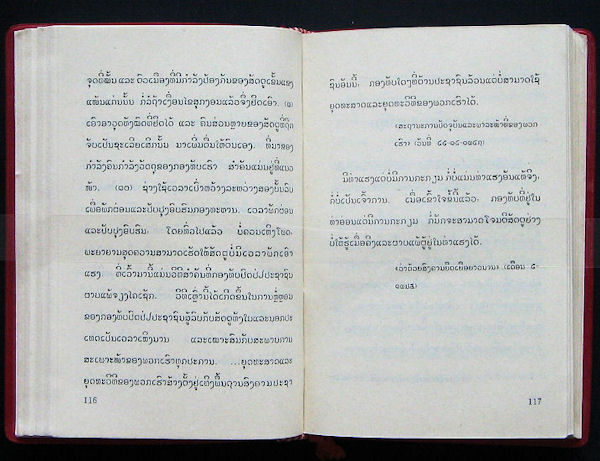 ຈຸດທີ່ໝັ້ນ ແລະ ຕົວເມືອງທີ່ມີກຳລັງປ້ອງກັນຂອງສັດຕູເຂັ້ມແຂງ
ແໜ້ນແກ່ນນັ້ນ ກໍ່ລໍຖ້າເງື່ອນໄຂສຸກງອມແລ້ວຈຶ່ງຢຶດເອົາ. (໙)
ເອົາອາວຸດທັງໝົດທີ່ຢຶດໄດ້ ແລະ ຄົນສ່ວນຫຼາຍຂອງສັດຕູທີ່ຖືກ
ຈັບເປັນຊະເລີຍເສິກນັ້ນ ມາເພີ່ມຕື່ມໃຫ້ຕົນເອງ. ທີ່ມາຂອງ
ກຳລັງຄົນກຳລັງວັດຖຸຂອງກອງທັບເຮົາ ສຳຄັນແມ່ນຢູ່ທີ່ແນວ
ໜ້າ. (໑໐) ຊ່າງໃຊ້ເວລາເປົ່າຫວ່າງລະຫວ່າງສອງບັ້ນລົບ
ເພື່ອພັກຜ່ອນແລະປັບປຸງອົບຮົມກອງທະຫານ. ເວລາພັກຜ່ອນ
ແລະປັບປຸງອົບຮົມ, ໂດຍທົ່ວໄປແລ້ວ ບໍ່ຄວນເຫິງໂພດ,
ພະຍາຍາມສຸດຄວາມສາມາດເຮັດໃຫ້ສັດຕູບໍ່ມີເວລາພັກເອົາ
ແຮງ. ທີ່ເວົ້າມານີ້ແມ່ນວິທີສຳຄັນທີ່ກອງທັບປົດປ່ອຍປະຊາຊົນ
ຕາບແພ້ຈຽງໄຄເຊັກ. ວິທີເຫຼົ່ານີ້ໄດ້ເກີດຂຶ້ນໃນການຫຼໍ່ຫຼອມ
ຂອງກອງທັບປົດປ່ອຍປະຊາຊົນສູ້ລົບກັບສັດຕູທັງໃນແລະນອກປະ
ເທດເປັນເວລາເຫິງນານ ແລະເໝາະສົມກັບສະພາບການ
ສະເພາະໜ້າຂອງພວກເຮົາທຸກປະການ. ...ຍຸດທະສາດແລະ
ຍຸດທະວິທີຂອງພວກເຮົາສ້າງຕັ້ງຢູ່ເທິງພື້ນຖານສົງຄາມປະຊາ
116
ຊົນອັນນີ້, ກອງທັບໃດໆທີ່ຕ້ານປະຊາຊົນລ້ວນແຕ່ບໍ່ສາມາດໃຊ້
ຍຸດທະສາດແລະຍຸດທະວິທີຂອງພວກເຮົາໄດ້.
⟨ສະຖານະການປັດຈຸບັນແລະພາລະໜ້າທີ່ຂອງພວກ
ເຮົາ⟩
ມີທ່າແຮງແຕ່ບໍ່ມີການກະກຽມ ກໍ່ບໍ່ແມ່ນທ່າແຮງອັນແທ້ຈິງ,
ກໍ່ບໍ່ເປັນເຈົ້າການ. ເມື່ອເຂົ້າໃຈຂໍ້ນີ້ແລ້ວ, ກອງທັບທີ່ຢູ່ໃນ
ທ່າອ່ອນແຕ່ມີການກະກຽມ ກໍ່ມັກຈະສາມາດໂຈມຕີສັດຕູຢ່າງ
ບໍ່ໃຫ້ຮູ້ເມື່ອຄີງແລະຕາບແພ້ຜູ້ຢູ່ໃນທ່າແຮງໄດ້.
⟨ວ່າດ້ວຍສົງຄາມຍືດເຍື້ອຍາວນານ⟩ (ເດືອນ ໕-
117